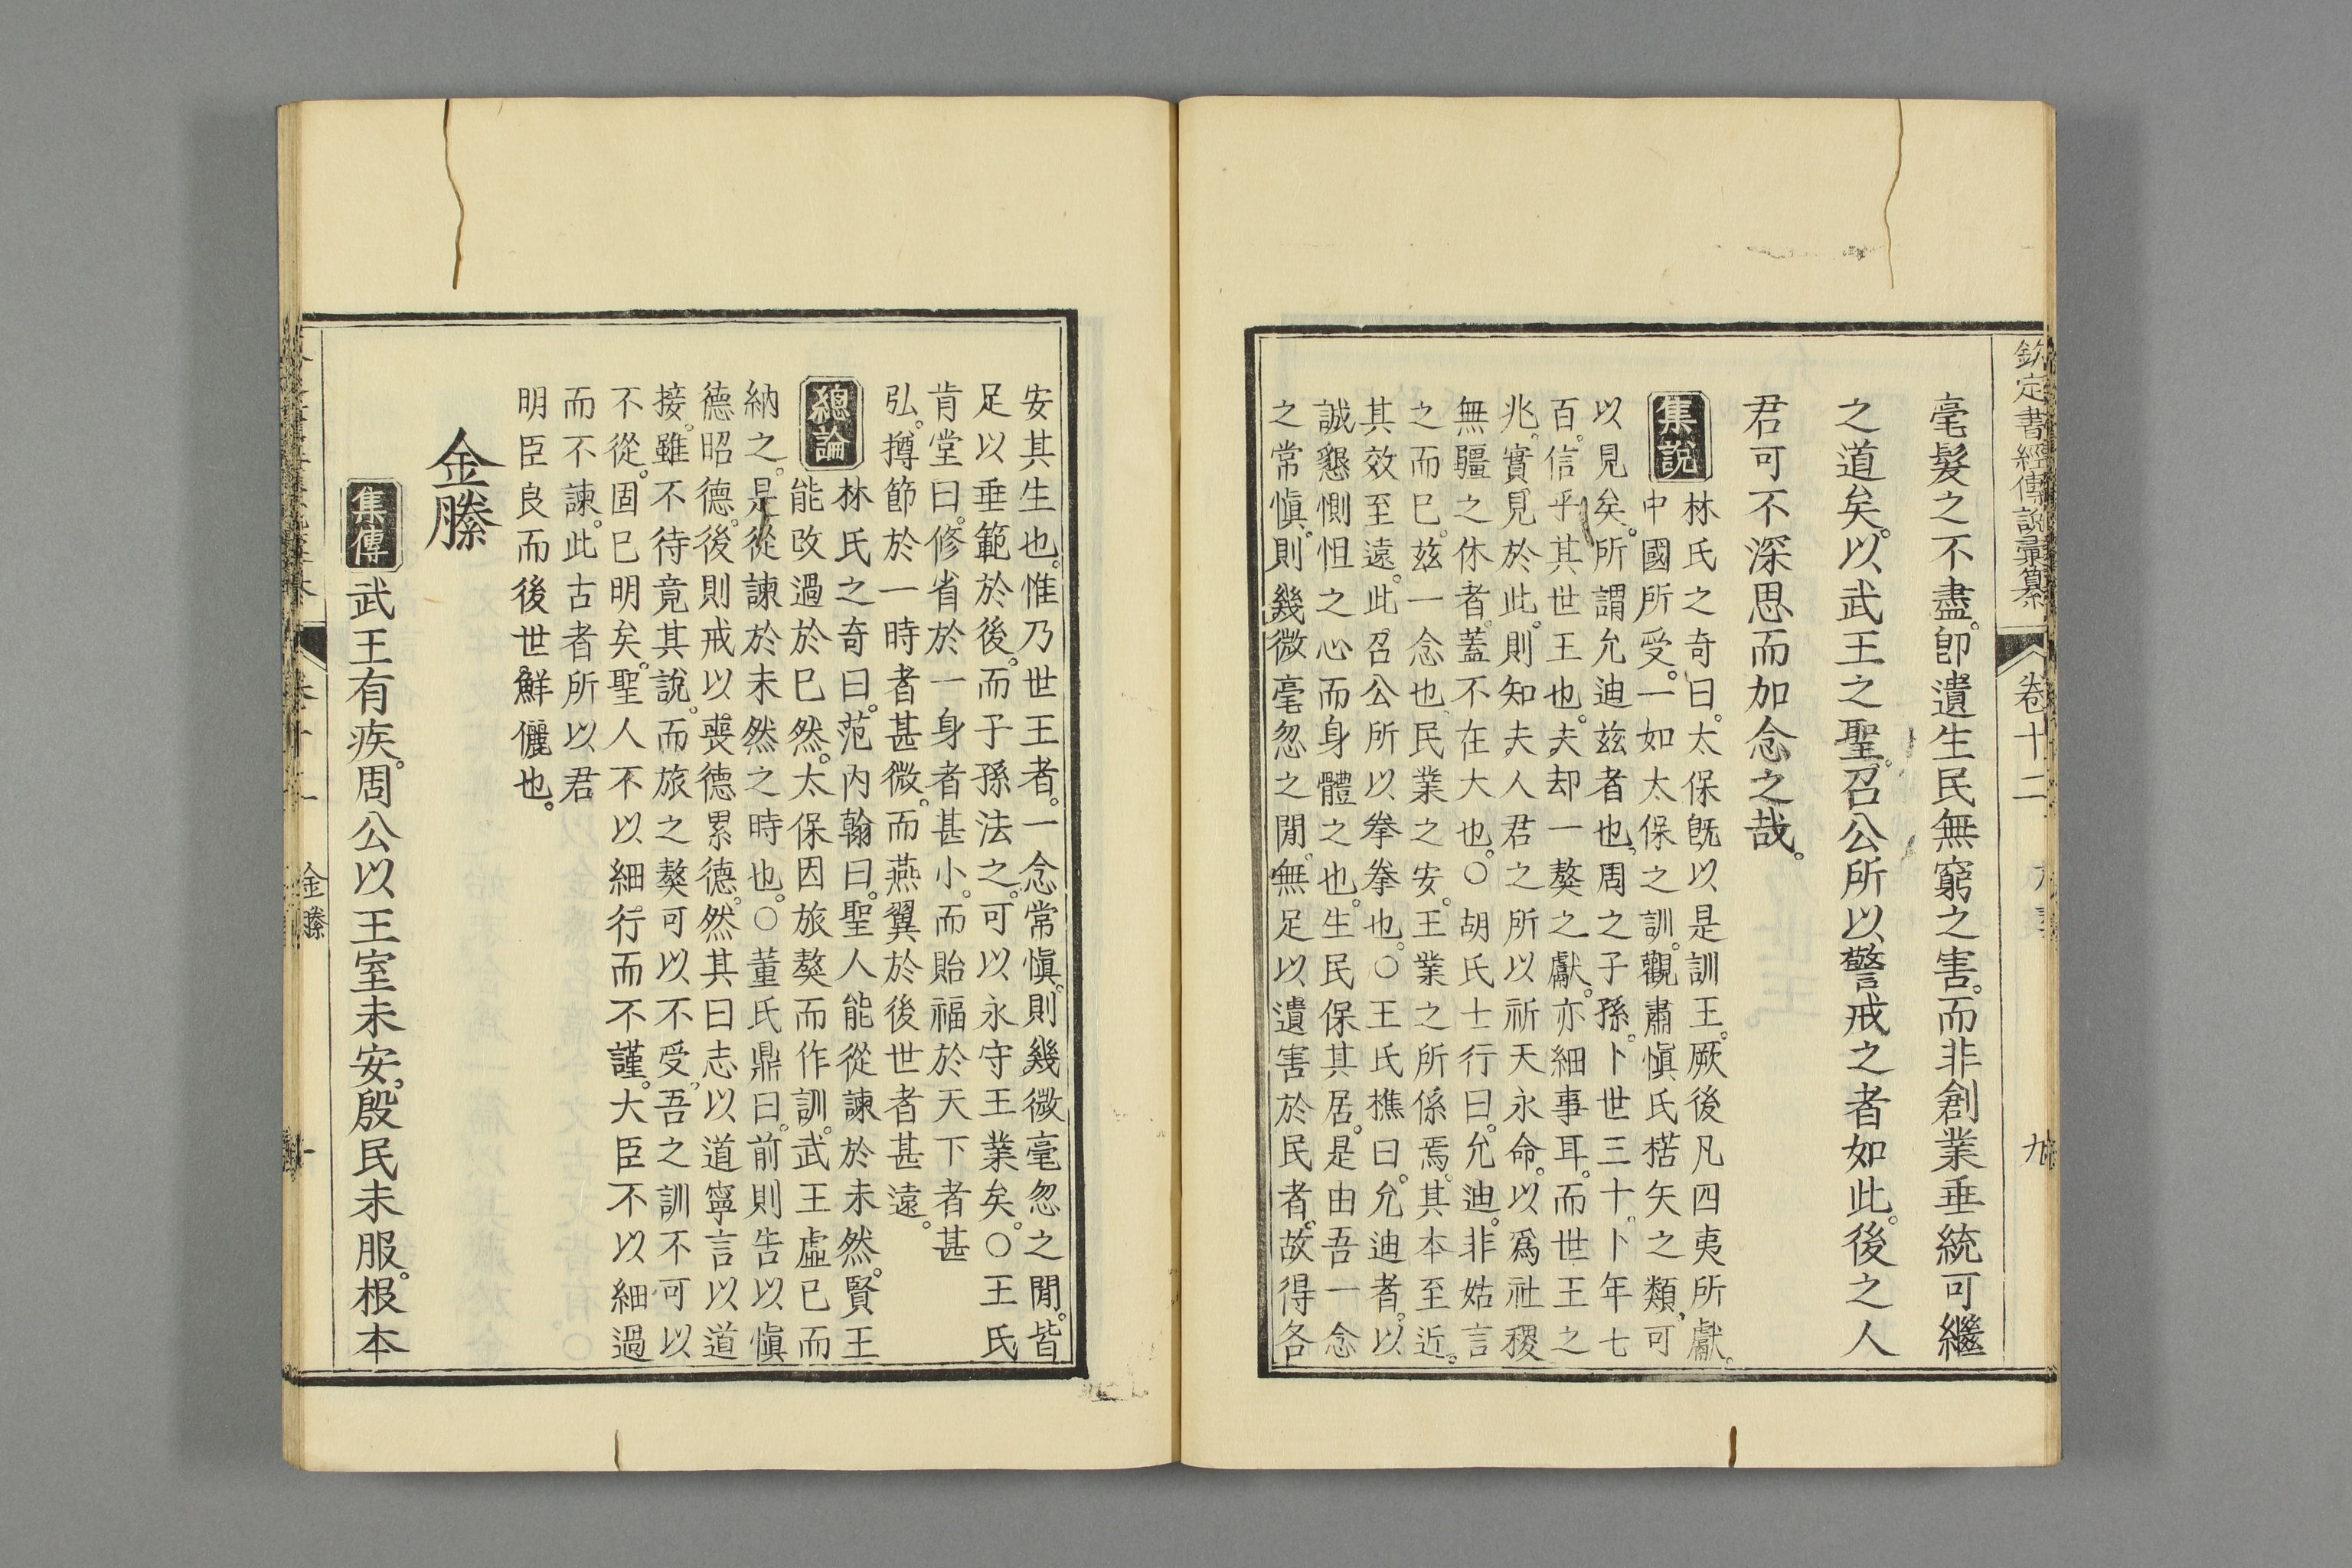 欽定書經傳說彙纂 卷十二 九
毫髮之不盡。卽遺生民無窮之害。而非創業垂統可繼
之道矣。以武王之聖。召公所以警戒之者如此。後之人
君可不深思而加念之哉。
集說
林氏之奇曰。太保旣以是訓王。厥後凡四夷所獻。
中國所受。一如太保之訓。觀肅愼氏楛矢之類。可
以見矣。所謂允迪茲者也。周之子孫。卜世三十。卜年七
百。信乎其世王也。夫却一獒之獻。亦細事耳。而世王之
兆。實見於此。則知夫人君之所以祈天永命。以爲社稷
無疆之休者。蓋不在大也。○胡氏士行曰。允迪。非姑言
之而已。茲一念也。民業之安。王業之所係焉。其本至近。
其效至遠。此召公所以拳拳也。○王氏樵曰。允迪者。以
誠懇惻怛之心而身體之也。生民保其居。是由吾一念
之常愼。則幾微毫忽之閒。無足以遺害於民者。故得各
安其生也。惟乃世王者。一念常愼。則幾微毫忽之閒。皆
足以垂範於後。而子孫法之。可以永守王業矣。○王氏
肯堂曰。修省於一身者甚小。而貽福於天下者甚
弘。撙節於一時者甚微。而燕翼於後世者甚遠。
總論
林氏之奇曰。范內翰曰。聖人能從諫於未然。賢王
能改過於已然。太保因旅獒而作訓。武王虛已而
納之。是從諫於未然之時也。○董氏鼎曰。前則告以愼
德昭德。後則戒以喪德累德。然其曰志以道寧言以道
接。雖不待竟其說。而旅之獒可以不受。吾之訓不可以
不從。固已明矣。聖人不以細行而不謹。大臣不以細過
而不諫。此古者所以君
明臣良而後世鮮儷也。
金縢
集傳
武王有疾。周公以王室未安。殷民未服。根本
金縢